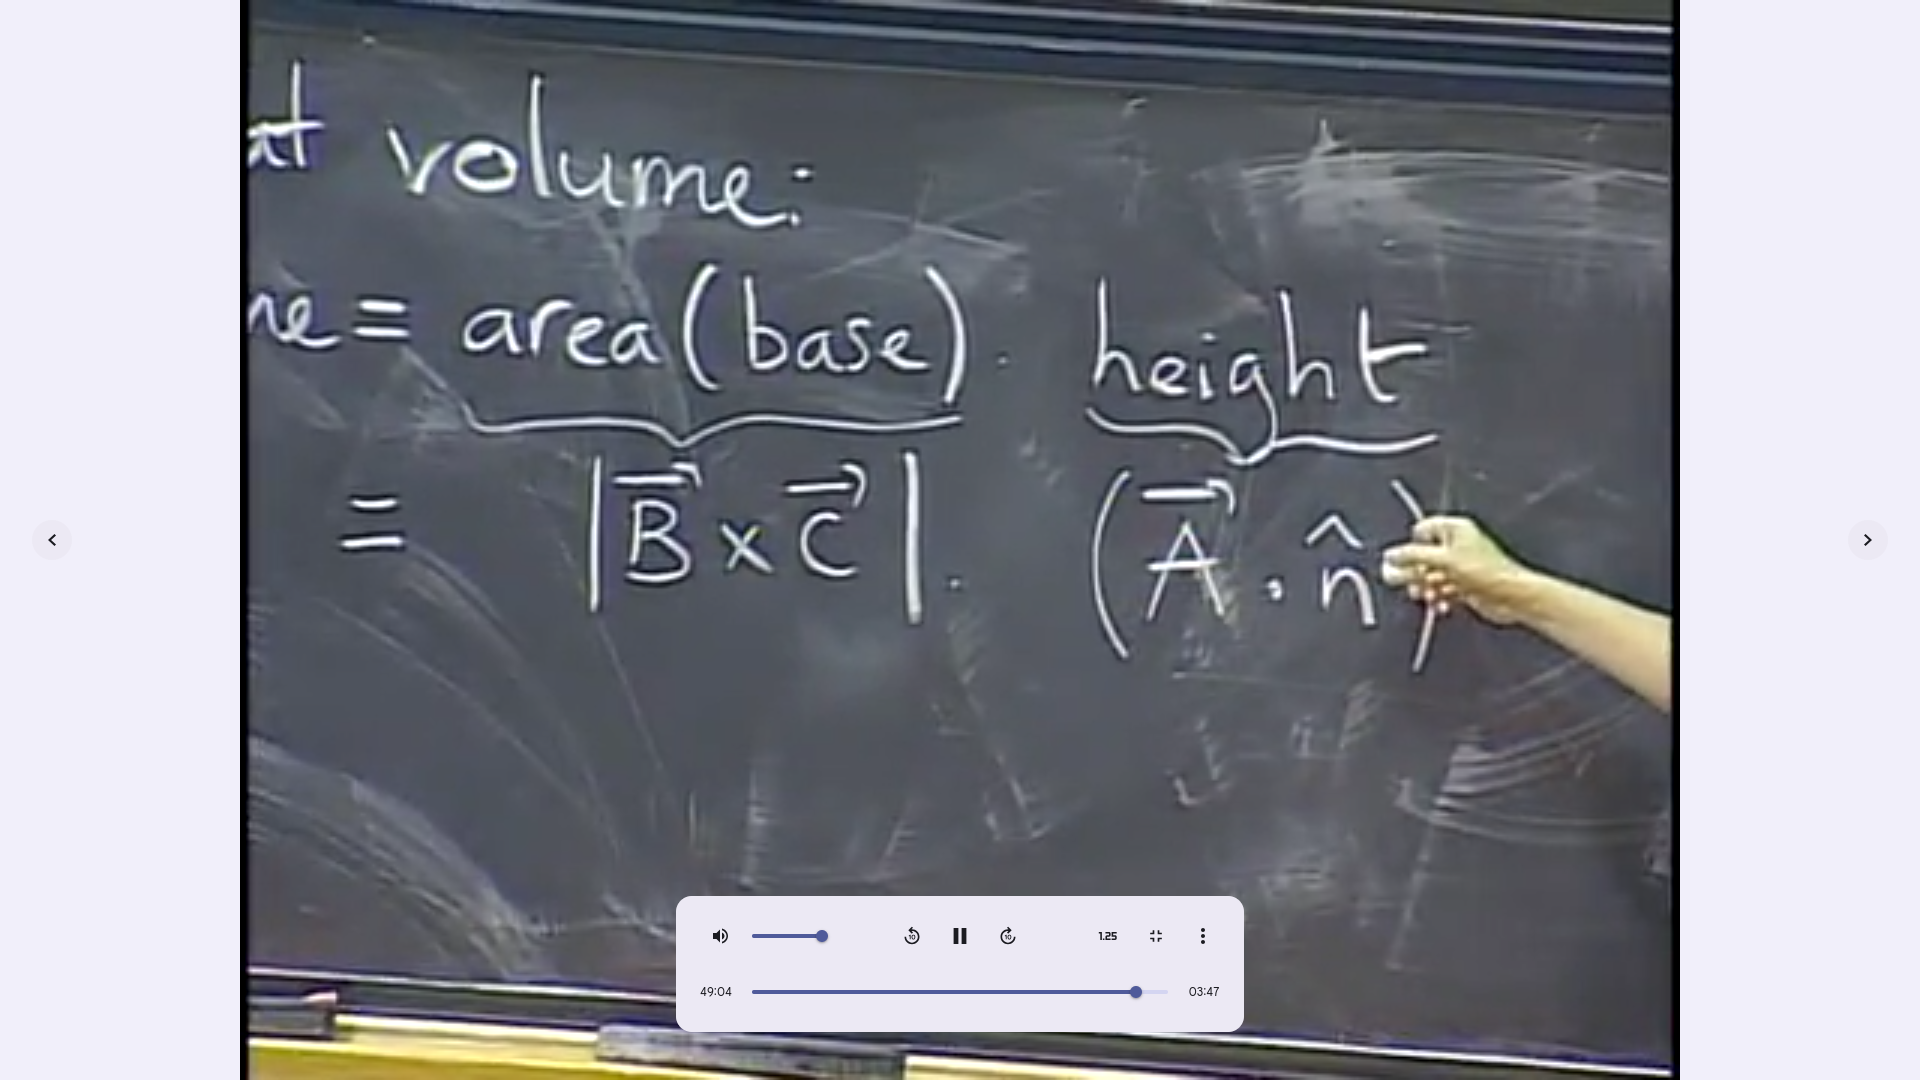 at volume:
ne = area(base). height
= |B⃗ × C⃗|. (A⃗ · n̂)
10
10
1.25
49:04
03:47